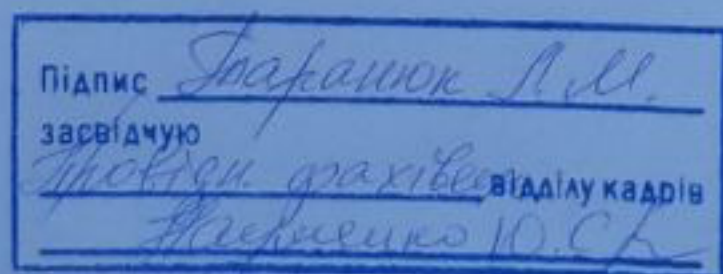 Підпис Таранюк Л.М.
засвідчую
Провідн. фахівець відділу кадрів
Ю.С.